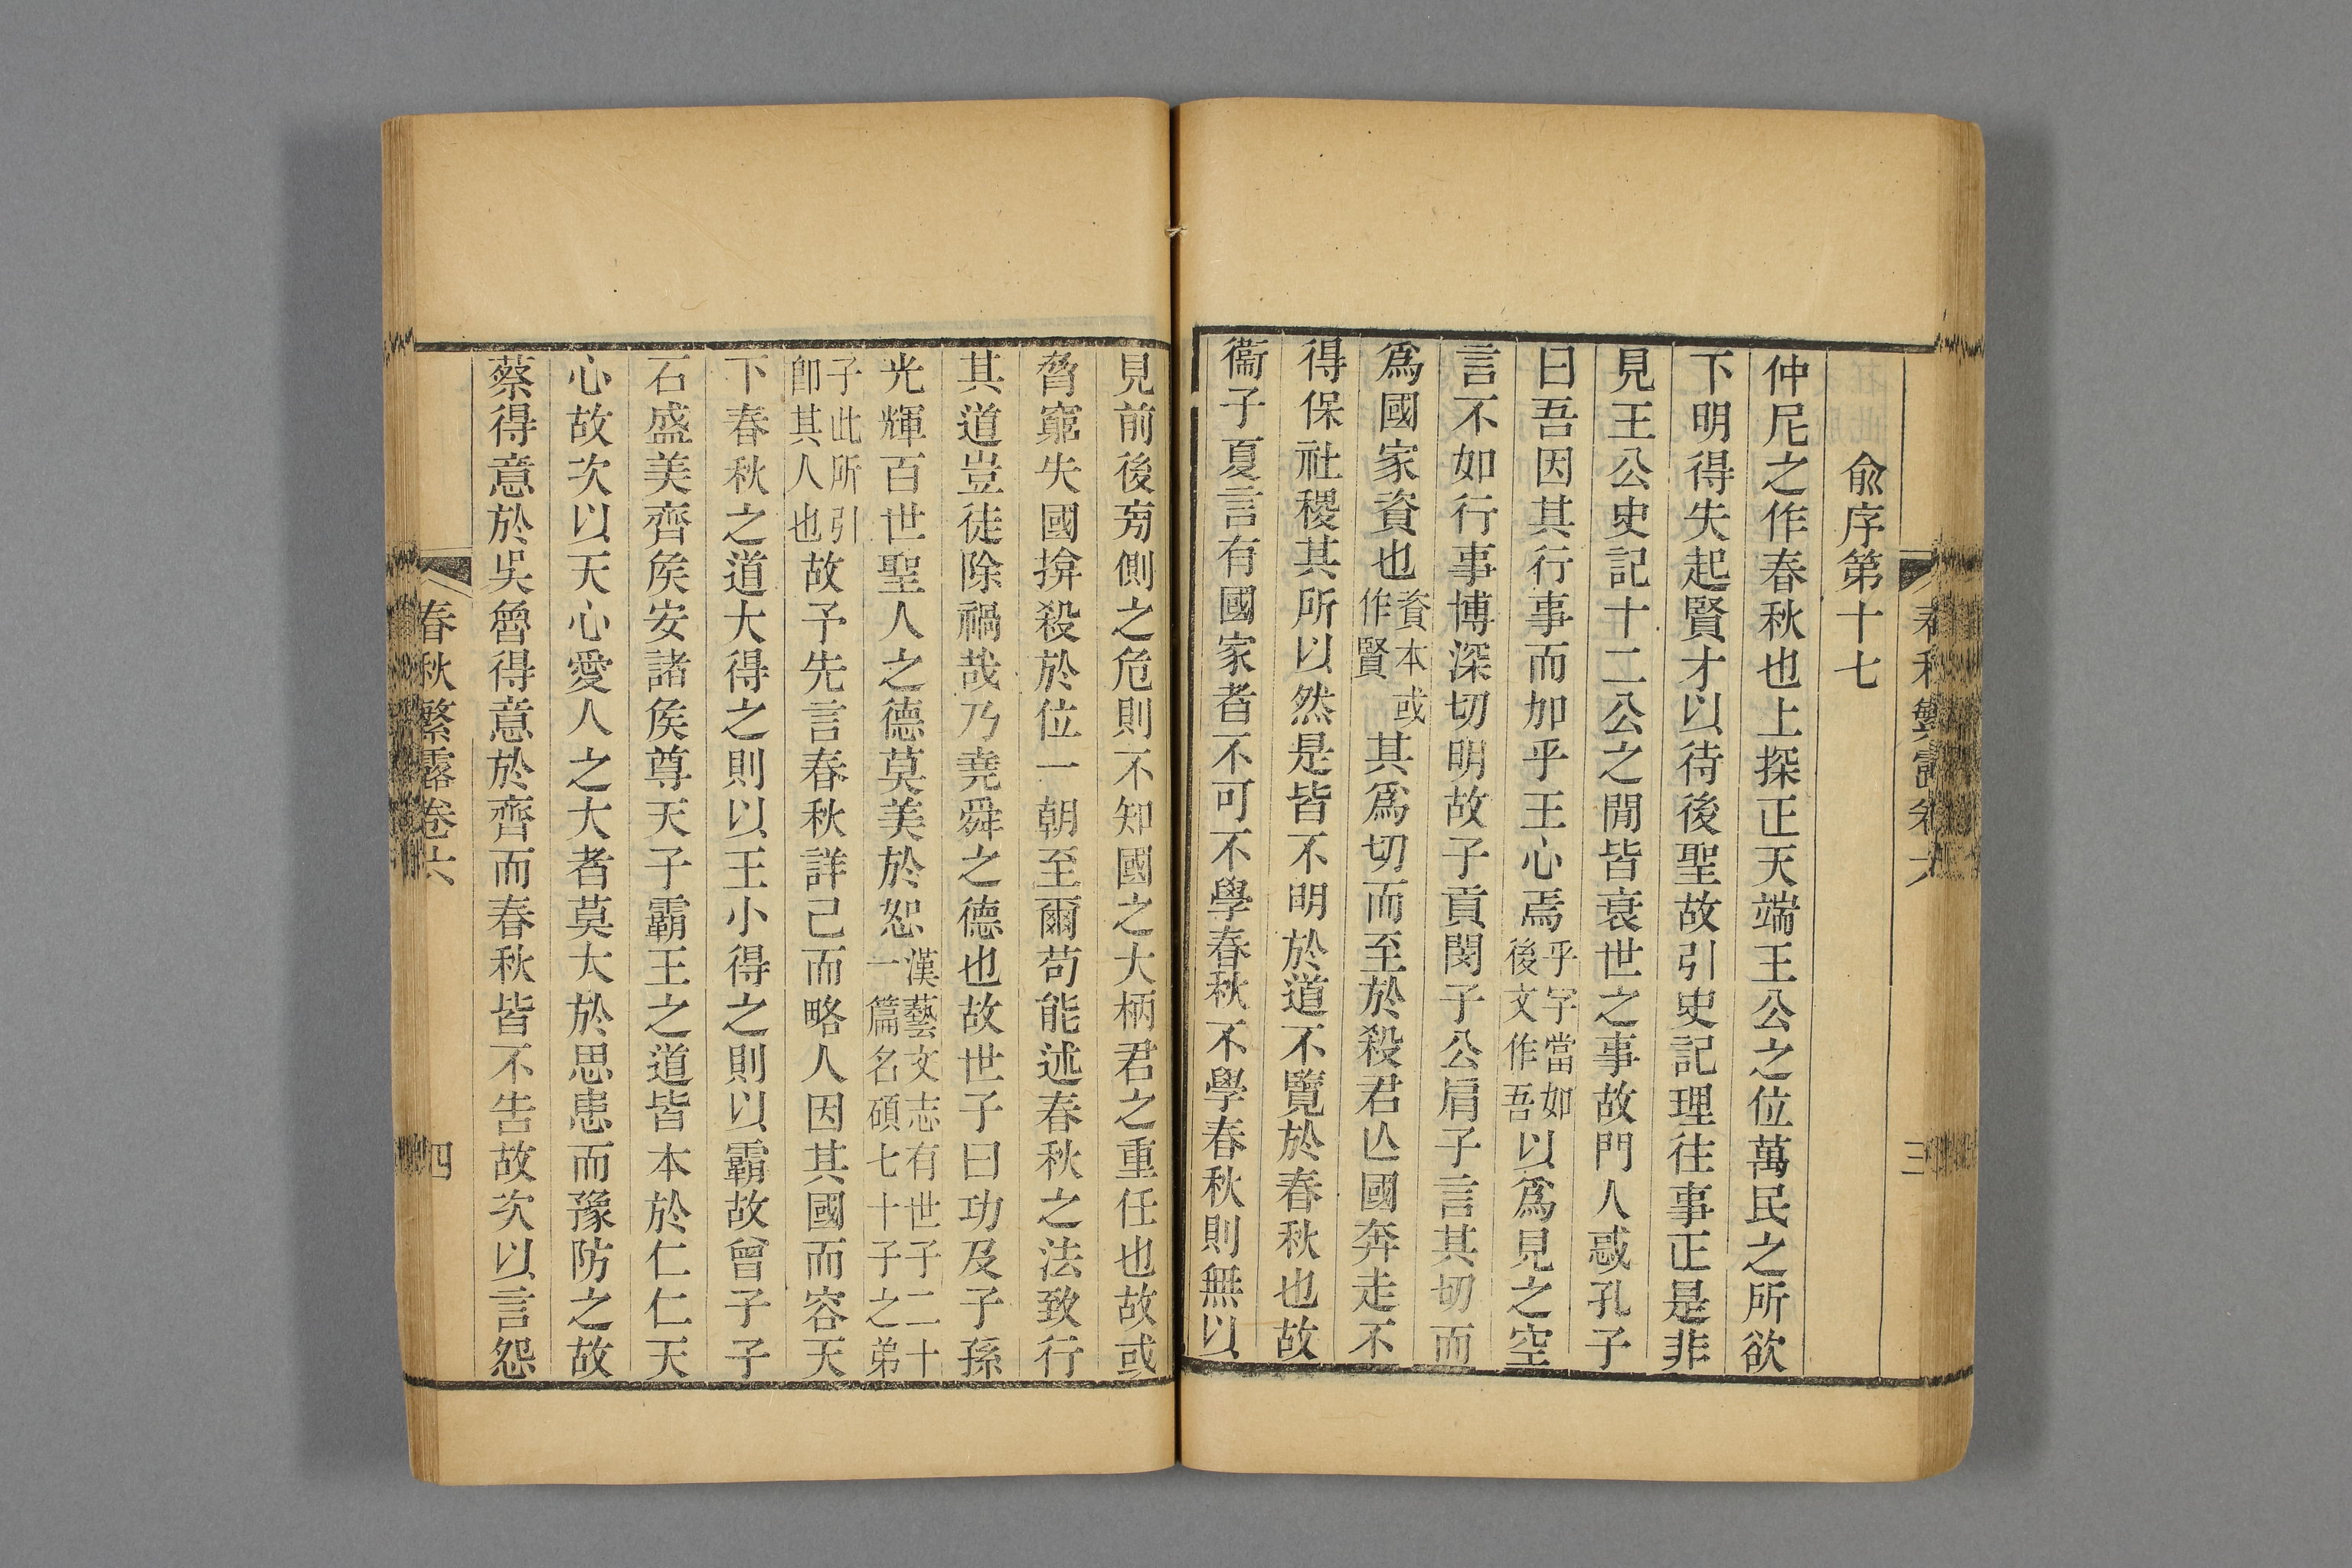 春秋繁露卷六
三
俞序第十七
仲尼之作春秋也上探正天端王公之位萬民之所欲
下明得失起賢才以待後聖故引史記理往事正是非
見王公史記十二公之閒皆衰世之事故門人惑孔子
曰吾因其行事而加乎王心焉乎字當如後文作吾以爲見之空
言不如行事博深切明故子貢閔子公肩子言其切而
爲國家資也資本或作賢其爲切而至於殺君亾國奔走不
得保社稷其所以然是皆不明於道不覽於春秋也故
衞子夏言有國家者不可不學春秋不學春秋則無以
見前後旁側之危則不知國之大柄君之重任也故或
脅窮失國揜殺於位一朝至爾苟能述春秋之法致行
其道豈徒除禍哉乃堯舜之德也故世子曰功及子孫
光輝百世聖人之德莫美於恕漢藝文志有世子二十一篇名碩七十子之弟
子此所引卽其人也故予先言春秋詳己而略人因其國而容天
下春秋之道大得之則以王小得之則以霸故曾子子
石盛美齊矦安諸矦尊天子霸王之道皆本於仁仁天
心故次以天心愛人之大者莫大於思患而豫防之故
蔡得意於吳魯得意於齊而春秋皆不告故次以言怨
春秋繁露卷六
四